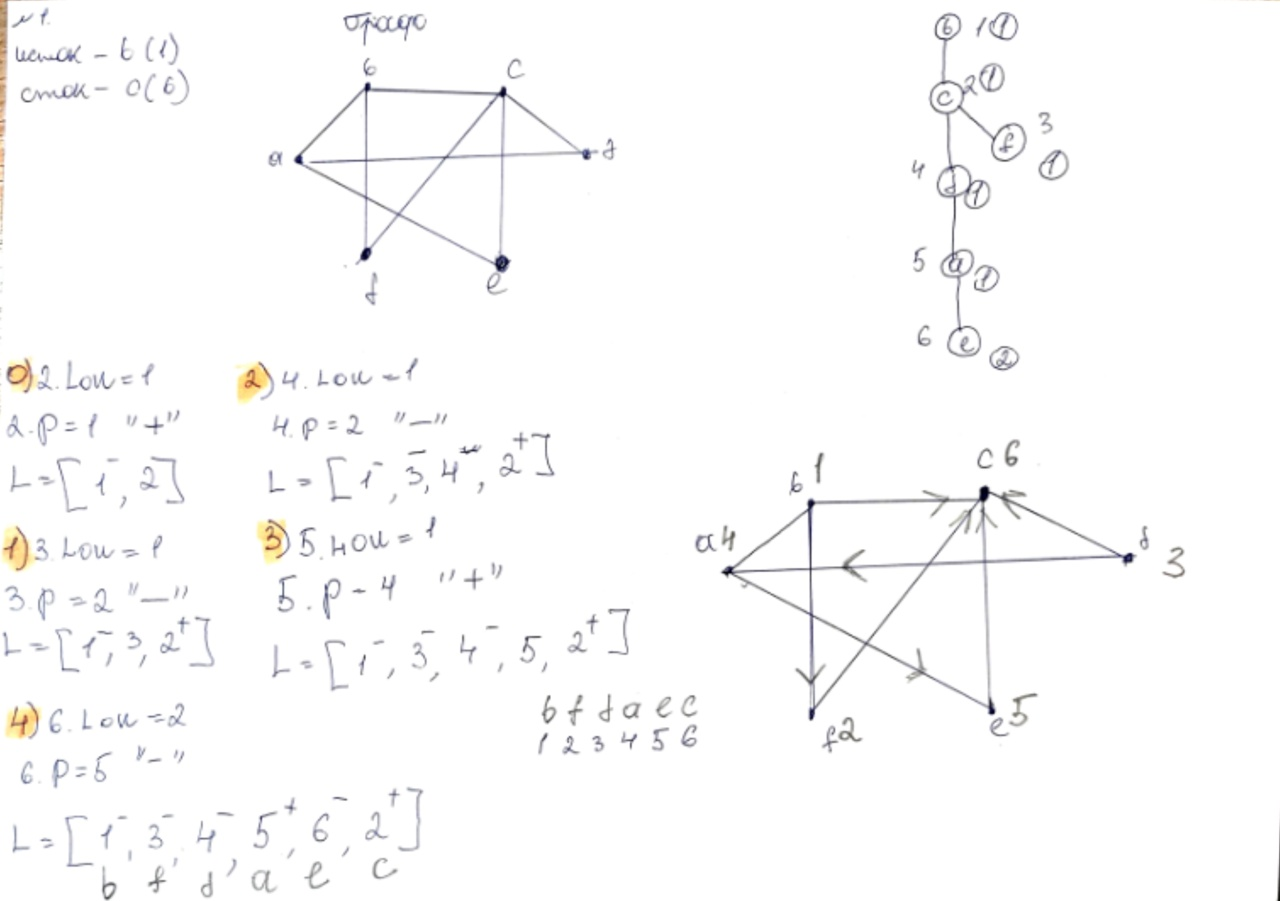 №1.
исток – b (1)
сток – 0(6)
Граф
b c
a d
f e
b 1 ①
c 2 ①
f 3 ①
4 d ①
5 a ①
6 e ②
0) 2. Low = 1
2. p = 1 "+"
L = [1⁻, 2]
1) 3. Low = 1
3. p = 2 "–"
L = [1⁻, 3, 2⁺]
2) 4. Low = 1
4. p = 2 "–"
L = [1⁻, 3⁻, 4, 2⁺]
3) 5. Low = 1
5. p – 4 "+"
L = [1⁻, 3⁻, 4⁻, 5, 2⁺]
4) 6. Low = 2
6. p = 5 "–"
L = [1⁻, 3⁻, 4⁻, 5⁺, 6⁻, 2⁺]
b f d a e c
b f d a e c
1 2 3 4 5 6
b 1 c 6
a 4 d 3
f 2 e 5